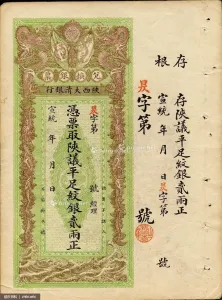 兌換銀票
陝西大清銀行
昃字第　　號
憑票取陝議平足紋銀貳兩正
宣統　年　月　日
經理
存根
昃字第　　號
存陝議平足紋銀貳兩正
宣統　年　月　日昃字第　　號